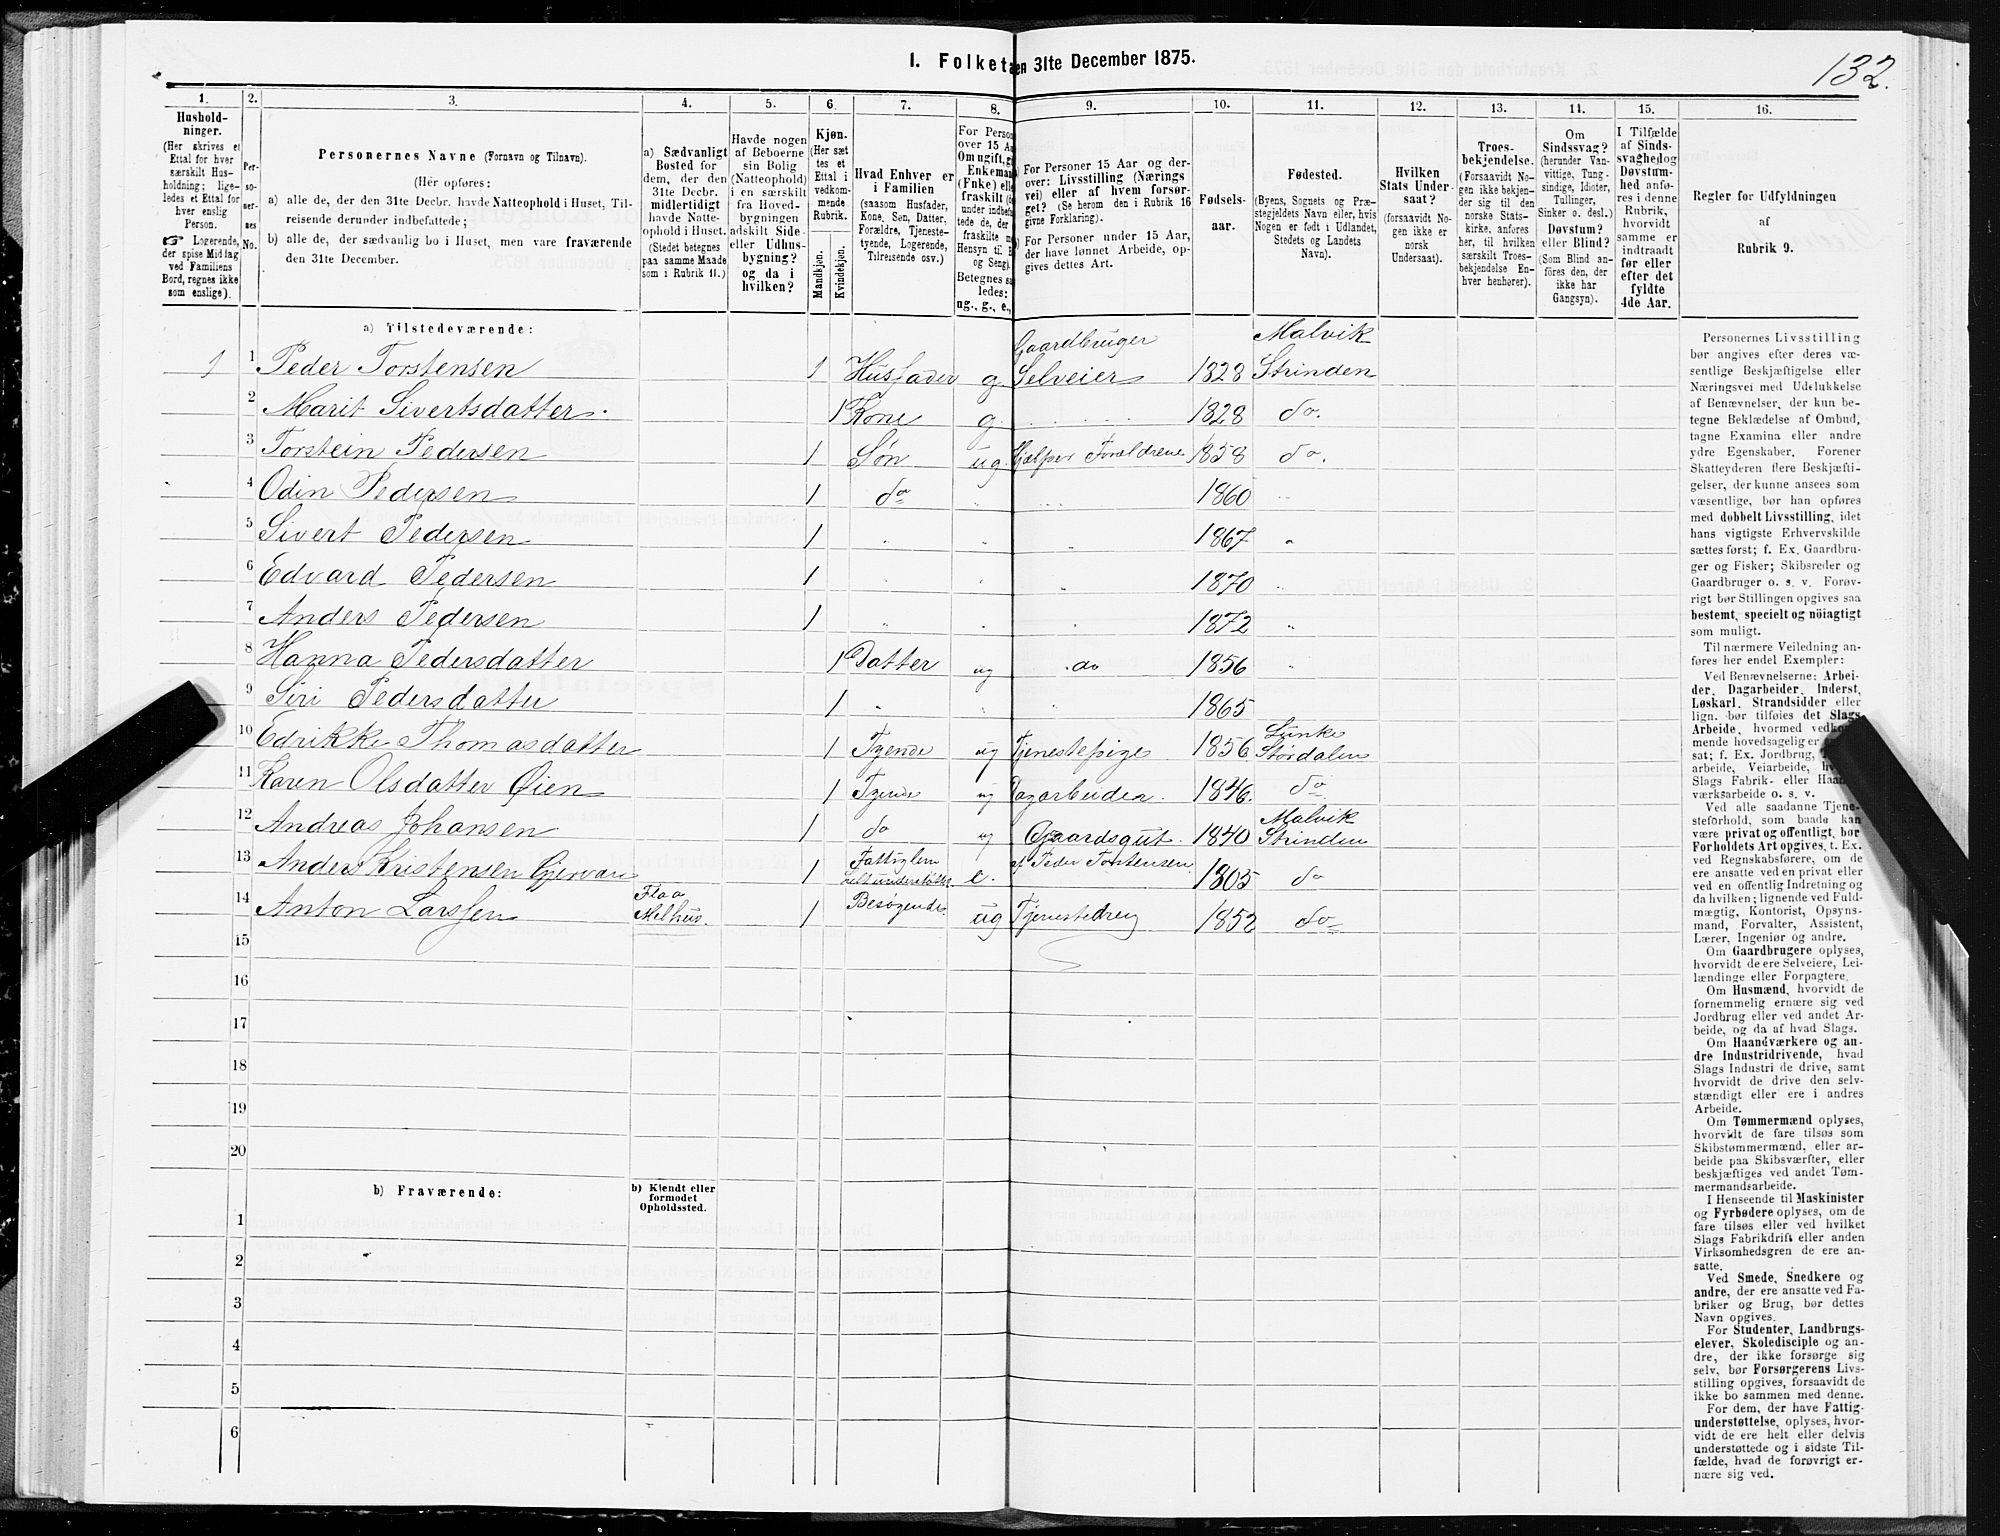 I. Folketa en 31te December 1875.
132.
1. 2. 3. 4. 5. 6. 7. 8. 9. 10. 11. 12. 13. 14. 15. 16.
Hushold-
ninger.
(Her skrives et
Ettal for hver
særskilt Hus-
holdning; lige-
ledes et Ettal for
hver enslig
Person.
Logerende,
der spise Middag
ved Familiens
Bord, regnes ikke
som enslige).
Per-
so-
ner-
nes
No.
Personernes Navne (Fornavn og Tilnavn).
(Her opføres:
a) alle de, der den 31te Decbr. havde Natteophold i Huset, Til-
reisende derunder indbefattede;
b) alle de, der sædvanlig bo i Huset, men vare fraværende
den 31te December.
a) Sædvanligt
Bosted for
dem, der den
31te Decbr.
midlertidigt
havde Natte-
ophold i Huset.
(Stedet betegnes
paa samme Maade
som i Rubrik 11.)
Havde nogen
af Beboerne
sin Bolig
(Natteophold)
i en særskilt
fra Hoved-
bygningen
adskilt Side-
eller Udhus-
bygning?
og da i
hvilken?
Kjøn.
(Her sæt
tes et
Ettal i
vedkom-
mende
Rubrik.
Mandkjøn.
Kvindekjøn.
Hvad Enhver er
i Familien
(saasom Husfader,
Kone, Søn, Datter,
Forældre, Tjeneste-
tyende, Logerende,
Tilreisende osv.)
For Person
over 15 Aa
Om ugift, g
Enkeman
(Fnke) elle
fraskilt (
under indbef
tede de, der
fraskilte m
Hensyn til B
og Seng).
Betegnes sa
ledes:
ug., g., e.,
For Personer 15 Aar og der-
over: Livsstilling (Nærings
vei) eller af hvem forsør-
get? (Se herom den i Rubrik 16
givne Forklaring).
For Personer under 15 Aar,
der have lønnet Arbeide, op-
gives dettes Art.
Fødsels-
aar.
Fødested.
(Byens, Sognets og Præ-
stegjeldets Navn eller, hvis
Nogen er født i Udlandet,
Stedets og Landets
Navn).
Hvilken
Stats Under-
saat?
(forsaavidt No-
gen ikke er
norsk
Undersaat).
Troes-
bekjendelse.
(Forsaavidt No-
gen ikke bekjen-
der sig til den
norske Stats-
kirke, anføres
her, til hvilken
særskilt Troes-
bekjendelse En-
hver henhører).
Om
Sindssvag?
(herunder Van-
vittige, Tung-
sindige, Idioter,
Tullinger,
Sinker o. desl.)
Døvstum?
eller Blind?
(Som Blind an-
føres den, der
ikke har
Gangsyn).
I Tilfælde
af Sinds-
svaghedog
Døvstum-
hed anfø-
res i denne
Rubrik,
hvorvidt
samme er
indtraadt
før eller
efter det
fyldte
4de Aar.
Regler for Udfyldningen
af
Rubrik 9.
a) Tilstedeværende:
1 1 Peder Torstensen 1 Husfader g Gaardbruger Selveier 1828 Malvik Strinden
2 Marit Sivertsdatter. 1 Kone g 1828 do.
3 Torstein Pedersen 1 Søn ug Hjælper Forældrene 1858 do.
4 Odin Pedersen 1 do " " 1860 "
5 Sivert Pedersen 1 " " " 1867 "
6 Edvard Pedersen 1 " " " 1870 "
7 Anders Pedersen 1 " " " 1872 "
8 Hanna Pedersdatter 1 Datter ug do 1856 "
9 Siri Pedersdatter 1 " " " 1865
10 Edrikke Thomasdatter 1 Tyende ug Tjenestepige 1856 Lunke Stördalen
11 Karen Olsdatter Øien 1 Tyende ug Dagarbeider 1846. do
12 Andreas Johansen 1 do ug Gaardsgut 1840 Malvik Strinden
13 Anders Kristensen Gjervan 1 Fattiglem helt understøttet e. af Peder Torstensen 1805 do
14 Anton Larssen Flaa Melhus. 1 Besøgende ug Tjenestedreng 1852 do
15
16
17
18
19
20
b) Fraværende:
b) Kjendt eller
formodet
Opholdssted.
1
2
3
4
5
6
Personernes Livsstilling
bør angives efter deres væ-
sentlige Beskjæftigelse eller
Næringsvei med Udelukkelse
af Benævnelser, der kun be-
tegne Beklædelse af Ombud,
tagne Examina eller andre
ydre Egenskaber. Forener
Skatteyderen flere Beskjæfti-
gelser, der kunne ansees som
væsentlige, bør han opføres
med dobbelt Livsstilling, idet
hans vigtigste Erhvervskilde
sættes først; f. Ex. Gaardbru-
ger og Fisker; Skibsreder og
Gaardbruger o. s. v. Forøv-
rigt bør Stillingen opgives saa
bestemt, specielt og nöiagtigt
som muligt.
Til nærmere Veiledning an-
føres her endel Exempler:
Ved Benævnelserne: Arbei-
der, Dagarbeider, Inderst,
Løskarl, Strandsidder eller
lign. bør tilføies det Slags
Arbeide, hvormed vedkom-
mende hovedsagelig er
sat; f. Ex. Jordbrug,
arbeide, Veiarbeide,
Slags Fabrik- eller Haand-
værksarbeide o. s. v.
Ved alle saadanne Tjene-
steforhold, som baade kan
være privat og offentligt, bør
Forholdets Art opgives, t. Ex.
ved Regnskabsførere, om de
ere ansatte ved en privat eller
ved en offentlig Indretning og
da hvilken; lignende ved Fuld-
mægtig, Kontorist, Opsyns-
mand, Forvalter, Assistent,
Lærer, Ingeniør og andre.
Om Gaardbrugere oplyses,
hvorvidt de ere Selveiere, Lei-
lændinge eller Forpagtere.
Om Husmænd, hvorvidt de
fornemmelig ernære sig ved
Jordbrug eller ved andet Ar-
beide, og da af hvad Slags.
Om Haandværkere og an-
dre Industridrivende, hvad
Slags Industri de drive, samt
hvorvidt de drive den selv-
stændigt eller ere i andres
Arbeide.
Om Tømmermænd oplyses,
hvorvidt de fare tilsøs som
Skibstømmermænd, eller ar-
beide paa Skibsværfter, eller
beskjæftiges ved andet Tøm-
mermandsarbeide.
I Henseende til Maskinister
og Fyrbødere oplyses, om de
fare tilsøs eller ved hvilket
Slags Fabrikdrift eller anden
Virksomhedsgren de ere an-
satte.
Ved Smede, Snedkere og
andre, der ere ansatte ved Fa-
briker og Brug, bør dettes
Navn opgives.
For Studenter, Landbrugs-
elever, Skoledisciple og an-
dre, der ikke forsørge sig
selv, bør Forsørgerens Livs-
stilling opgives, forsaavidt de
ikke bo sammen med denne.
For dem, der have Fattig-
understøttelse, oplyses, hvor-
vidt de ere helt eller delvis
understøttede og i sidste Til-
fælde, hvad de forøvrigt er-
nære sig ved.